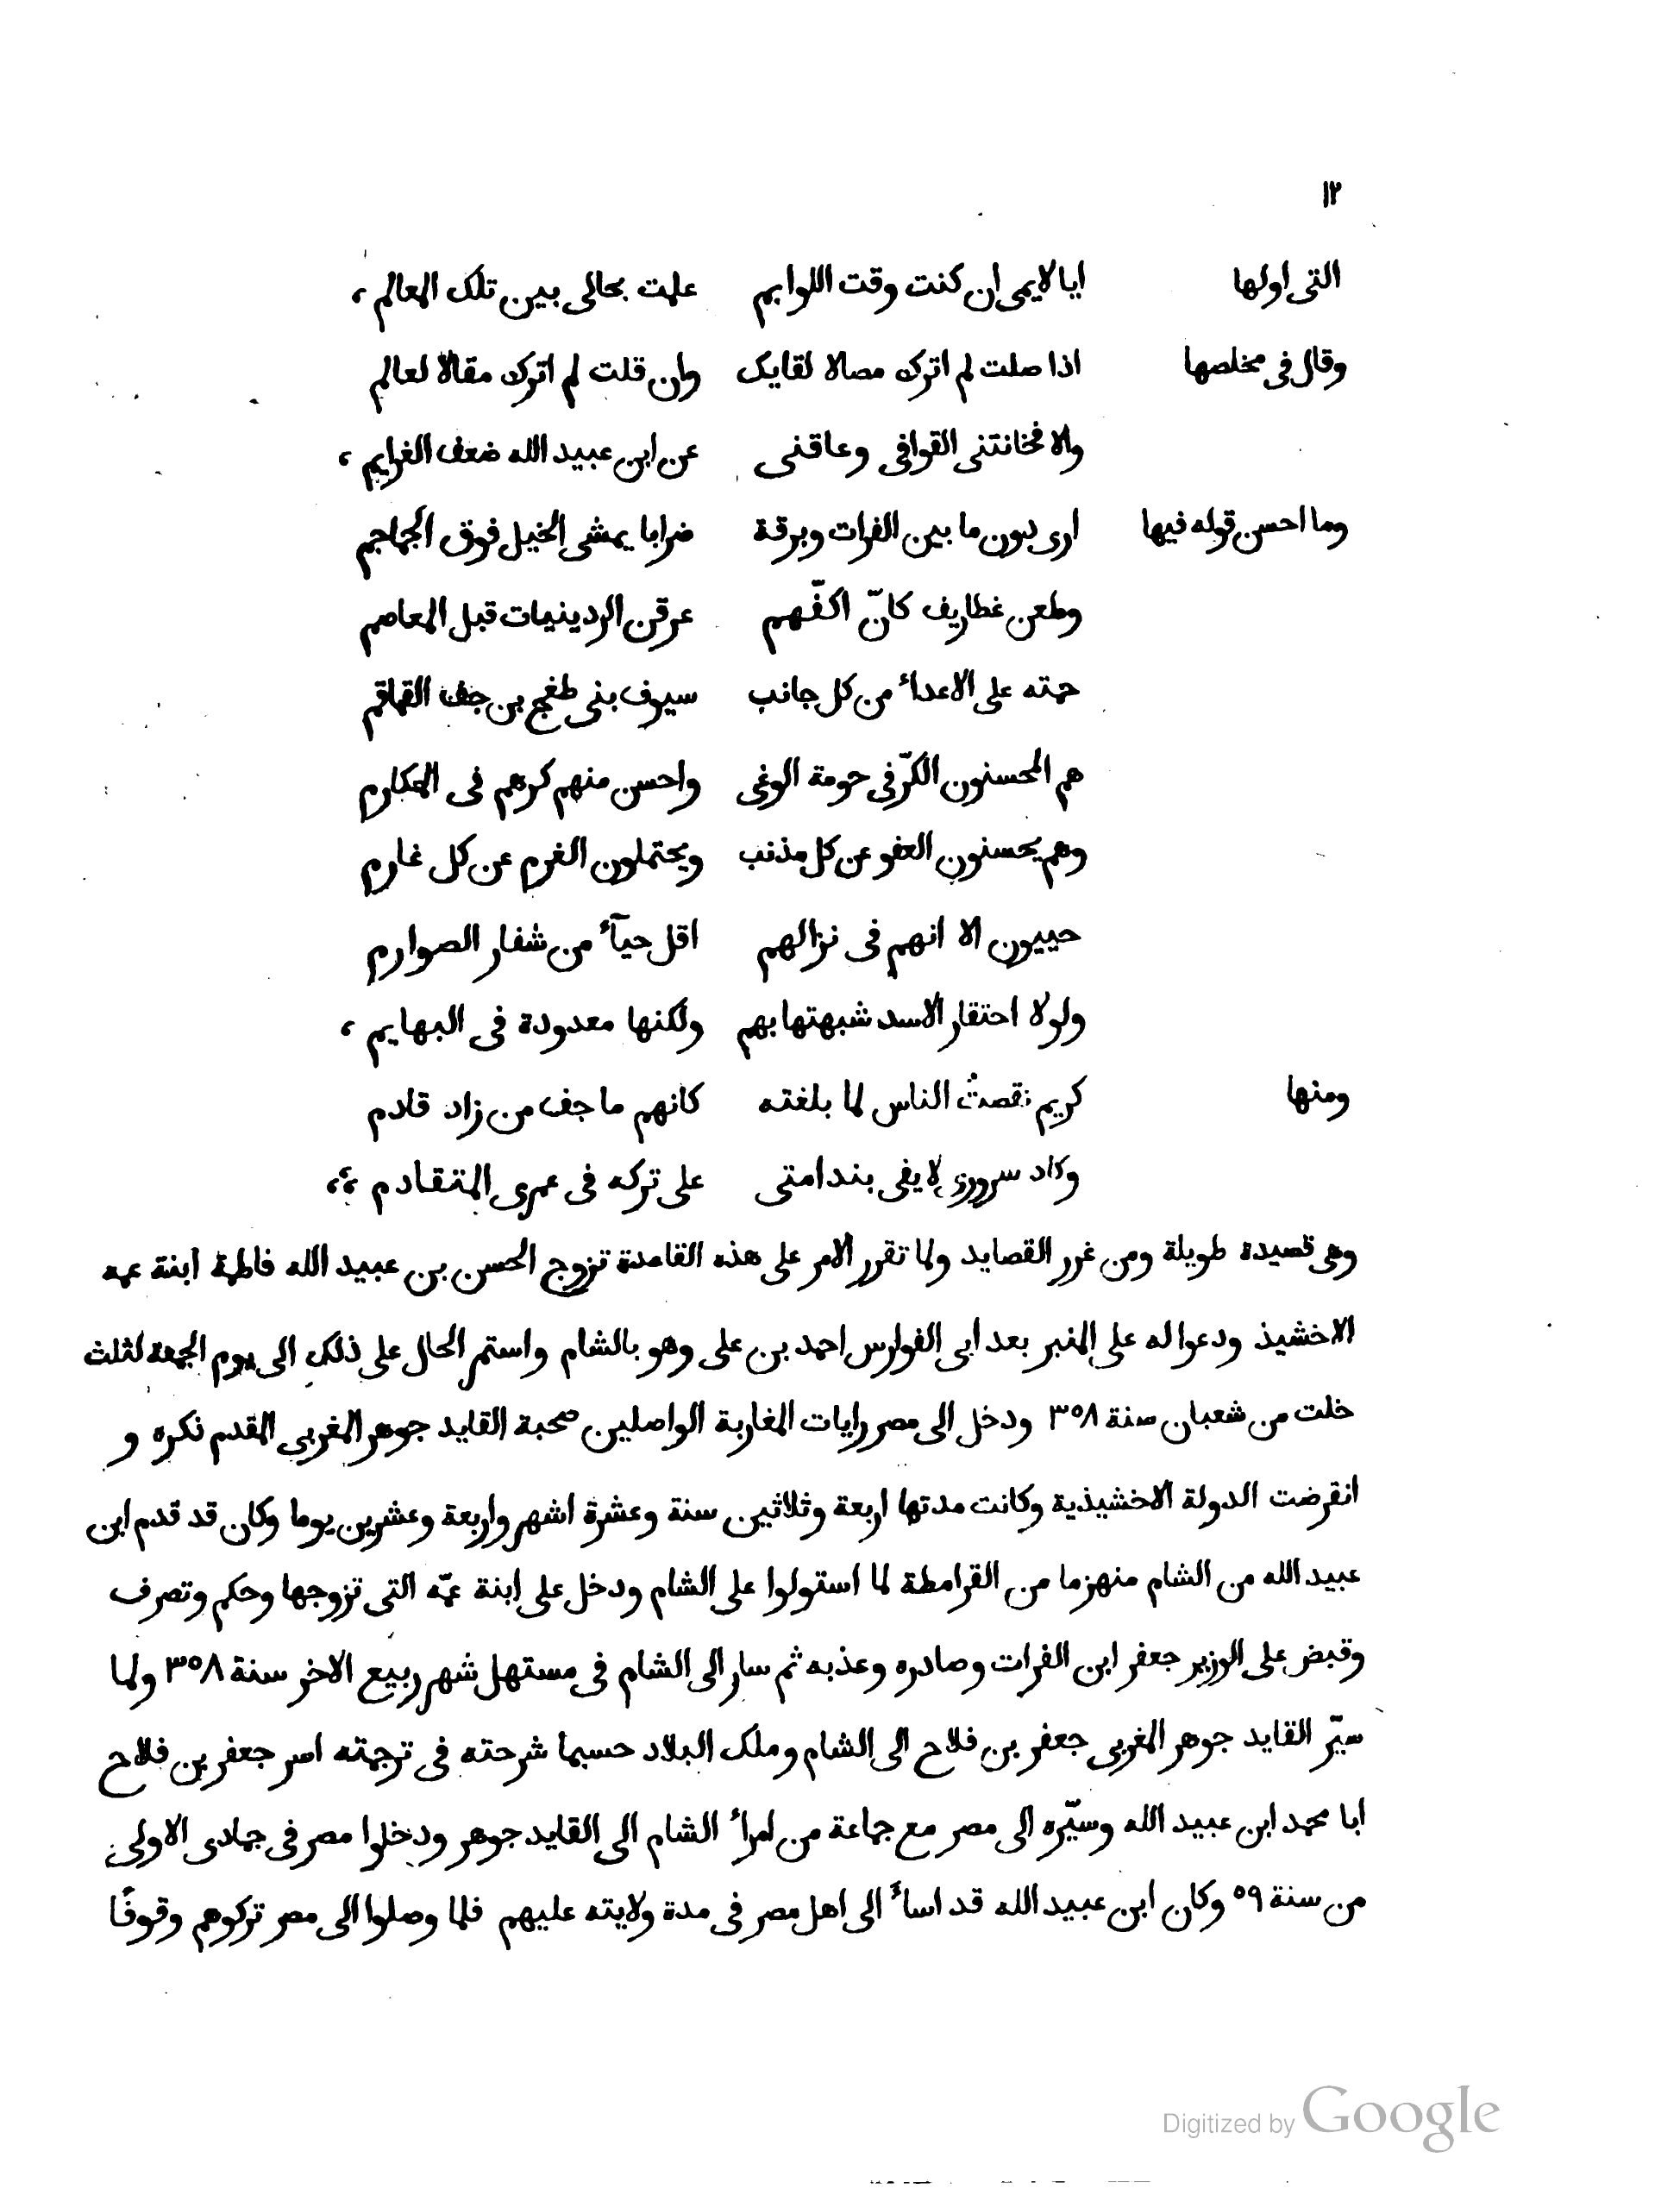 ١٢
التى اولها ايا لايمى ان كنت وقت اللوايم علمت بحالى بين تلك المعالم ،
وقال فى مخلصها اذا صلت لم اترك مصالا لفاتك وان قلت لم اترك مقالا لعالم
والا فخانتنى القوافى وعاقنى عن ابن عبيد الله ضعف الغرايم ،
وما احسن قوله فيها ارى دون ما بين الفرات وبرقة ضرابا يمشى الخيل فوق الجماجم
وطعن غطاريف كانّ اكفّهم عرفن الردينيات قبل المعاصم
حمته على الاعداء من كل جانب سيوف بنى طغج بن جف القماقم
هم المحسنون الكرّ فى حومة الوغى واحسن منهم كرهم فى المكارم
وهم يحسنون العفو عن كل مذنب ويحتملون الغرم عن كل غارم
حييون الا انهم فى نزالهم اقل حيآء من شفار الصوارم
ولولا احتقار الاسد شبهتها بهم ولكنها معدودة فى البهايم ،
ومنها كريم نفضت الناس لما بلغته كانهم ما جف من زاد قادم
وكاد سرورى لا يفى بندامتى على تركه فى عمرى المتقادم ؛،
وهى قصيدة طويلة ومن غرر القصايد ولما تقرر الامر على هذه القاعدة تزوج الحسن بن عبيد الله فاطمة ابنة عمه
الاخشيذ ودعوا له على المنبر بعد ابى الفوارس احمد بن على وهو بالشام واستمر الحال على ذلك الى يوم الجمعة لثلث
خلت من شعبان سنة ٣٥٨ ودخل الى مصر رايات المغاربة الواصلين صحبة القايد جوهر المغربى المقدم ذكره و
انقرضت الدولة الاخشيذية وكانت مدتها اربعة وثلاثين سنة وعشرة اشهر واربعة وعشرين يوما وكان قد قدم ابن
عبيد الله من الشام منهزما من القرامطة لما استولوا على الشام ودخل على ابنة عمّه التى تزوجها وحكم وتصرف
وقبض على الوزير جعفر ابن الفرات وصادره وعذبه ثم سار الى الشام فى مستهل شهر ربيع الاخر سنة ٣٥٨ ولما
سيّر القايد جوهر المغربى جعفر بن فلاح الى الشام وملك البلاد حسبما شرحته فى ترجمته اسر جعفر بن فلاح
ابا محمد ابن عبيد الله وسيّره الى مصر مع جماعة من امراء الشام الى القايد جوهر ودخلوا مصر فى جمادى الاولى
من سنة ٥٩ وكان ابن عبيد الله قد اساء الى اهل مصر فى مدة ولايته عليهم فلما وصلوا الى مصر تركوهم وقوفًا
Digitized by Google